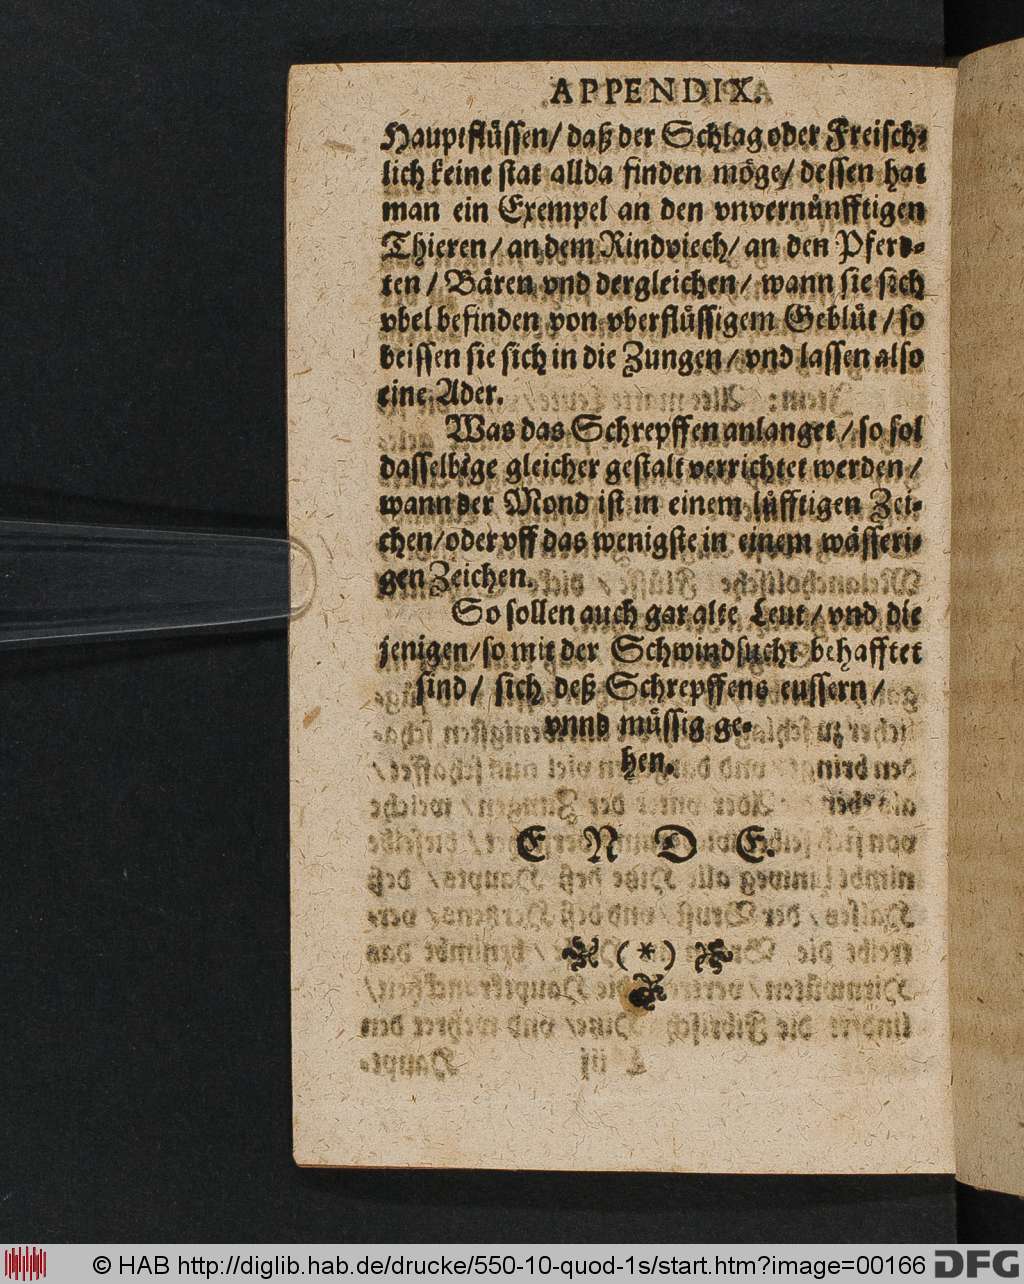 APPENDIX.
Hauptflüssen/ daß der Schlag oder Freisch-
lich keine stat allda finden möge/ dessen hat
man ein Exempel an den vnvernünfftigen
Thieren/ an dem Rindviech/ an den Pfer-
ten/ Bären vnd dergleichen/ wann sie sich
vbel befinden von vberflüssigem Geblüt/ so
beissen sie sich in die Zungen/ vnd lassen also
eine Ader.
Was das Schrepffen anlanget/ so sol
dasselbige gleicher gestalt verrichtet werden/
wann der Mond ist in einem lüfftigen Zei-
chen/ oder vff das wenigste in einem wässeri-
gen Zeichen.
So sollen auch gar alte Leut/ vnd die
jenigen/ so mit der Schwindsucht behafftet
sind/ sich deß Schrepffens eussern/
vnnd müssig ge-
hen.
E N D E.
(*)
© HAB http://diglib.hab.de/drucke/550-10-quod-1s/start.htm?image=00166
DFG